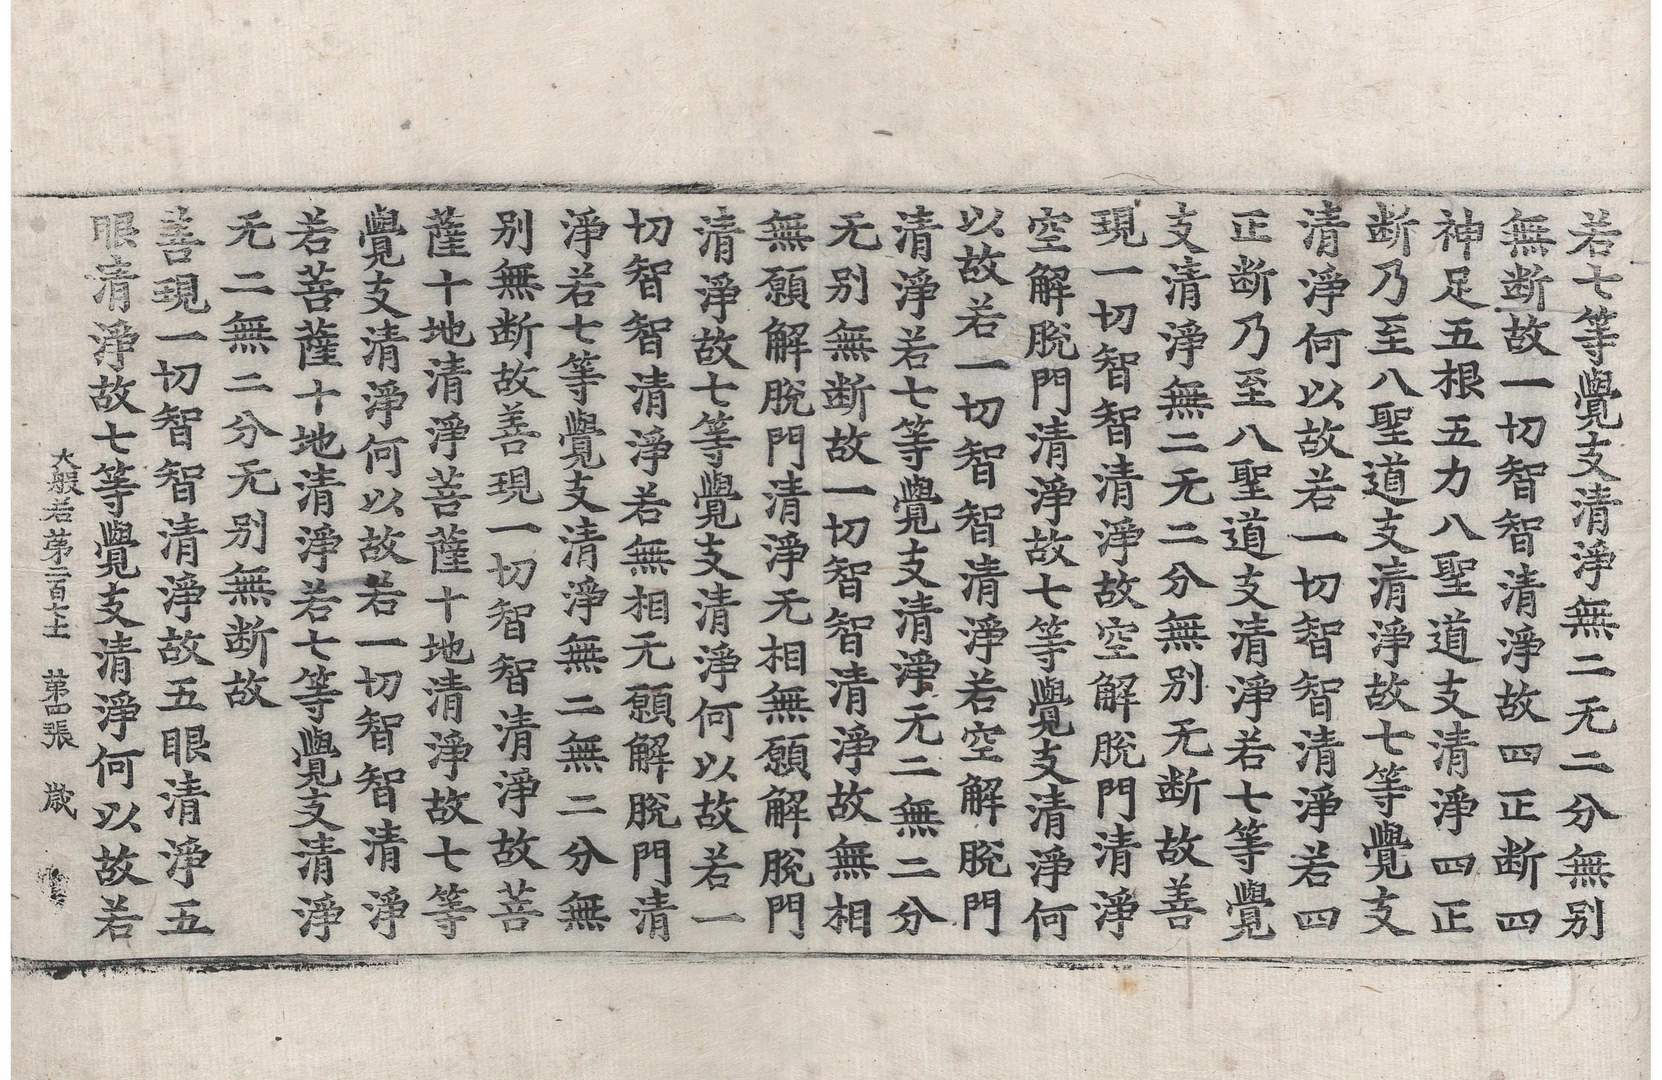 若七等覺支清淨無二无二分無别
無断故一切智智清淨故四正断四
神足五根五力八聖道支清淨四正
断乃至八聖道支清淨故七等覺支
清淨何以故若一切智智清淨若四
正断乃至八聖道支清淨若七等覺
支清淨無二无二分無别无断故善
現一切智智清淨故空解脫門清淨
空解脫門清淨故七等覺支清淨何
以故若一切智智清淨若空解脫門
清淨若七等覺支清淨无二無二分
无别無断故一切智智清淨故無相
無願解脫門清淨无相無願解脫門
清淨故七等覺支清淨何以故若一
切智智清淨若無相无願解脫門清
淨若七等覺支清淨無二無二分無
别無断故善現一切智智清淨故菩
薩十地清淨菩薩十地清淨故七等
覺支清淨何以故若一切智智清淨
若菩薩十地清淨若七等覺支清淨
无二無二分无别無断故
善現一切智智清淨故五眼清淨五
眼清淨故七等覺支清淨何以故若
大般若第二百七十 第四張 歲